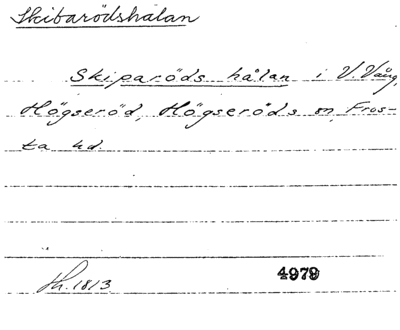 Skibarödshålan
Skiparöds hålan i V. Vång,
Högseröd, Högseröds sn, Fros-
ta hd.
Sk. 1813 4979